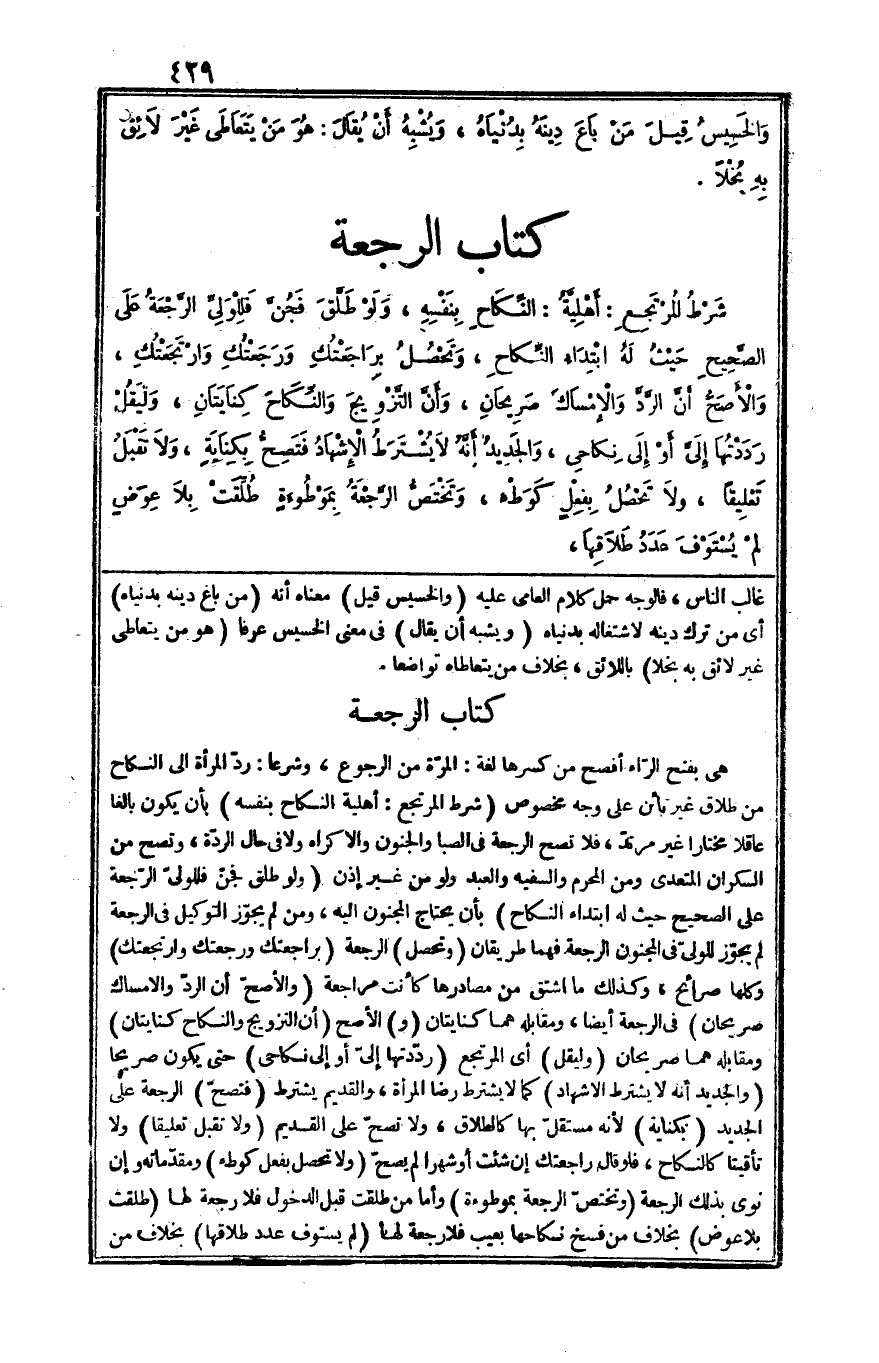 ٤٣٩
وَالْخَسِيسُ قِيلَ مَنْ بَاعَ دِينَهُ بِدُنْيَاهُ ، وَيُشْبِهُ أَنْ يُقَالَ : هُوَ مَنْ يَتَعَاطَى غَيْرَ لَائِقٍ
بِهِ بُخْلًا .
كتاب الرجعة
شَرْطُ الْمُرْتَجِعِ : أَهْلِيَّةُ : النِّكَاحِ بِنَفْسِهِ ، وَلَوْ طَلَّقَ فَجُنَّ فَلِلْوَلِيِّ الرَّجْعَةُ عَلَى
الصَّحِيحِ حَيْثُ لَهُ ابْتِدَاءُ النِّكَاحِ ، وَتَحْصُلُ بِرَاجَعْتُكِ وَرَجَعْتُكِ وَارْتَجَعْتُكِ ،
وَالْأَصَحُّ أَنَّ الرَّدَّ وَالْإِمْسَاكَ صَرِيحَانِ ، وَأَنَّ التَّزْوِيجَ وَالنِّكَاحَ كِنَايَتَانِ ، وَلْيَقُلْ
رَدَدْتُهَا إِلَىَّ أَوْ إِلَى نِكَاحِى ، وَالْجَدِيدُ أَنَّهُ لَا يُشْتَرَطُ الْإِشْهَادُ فَتَصِحُّ بِكِنَايَةٍ ، وَلَا تَقْبَلُ
تَعْلِيقًا ، وَلَا تَحْصُلُ بِفِعْلٍ كَوَطْءٍ ، وَتَخْتَصُّ الرَّجْعَةُ بِمَوْطُوءَةٍ طُلِّقَتْ بِلَا عِوَضٍ
لَمْ يُسْتَوْفَ عَدَدُ طَلَاقِهَا ،
غالب الناس ، فالوجه حمل كلام العامى عليه (والخسيس قيل) معناه أنه (من باع دينه بدنياه)
أى من ترك دينه لاشتغاله بدنياه (ويشبه أن يقال) فى معنى الخسيس عرفا (هو من يتعاطى
غير لائق به بخلا) باللائق ، بخلاف من يتعاطاه تواضعا .
كتاب الرجعة
هى بفتح الرّاء أفصح من كسرها لغة : المرّة من الرجوع ، وشرعا : ردّ المرأة الى النكاح
من طلاق غير بائن على وجه مخصوص (شرط المرتجع : أهلية النكاح بنفسه) بأن يكون بالغا
عاقلا مختارا غير مرتدّ ، فلا تصح الرجعة فى الصبا والجنون والاكراه ولا فى حال الردّة ، وتصح من
السكران المتعدى ومن المحرم والسفيه والعبد ولو من غير إذن (ولو طلق فجنّ فللولىّ الرّجعة
على الصحيح حيث له ابتداء النكاح) بأن يحتاج المجنون اليه ، ومن لم يجوّز التوكيل فى الرجعة
لم يجوّز للولىّ فى المجنون الرجعة فهما طريقان (وتحصل) الرجعة (براجعتك ورجعتك وارتجعتك)
وكلها صرائح ، وكذلك ما اشتق من مصادرها كأنت مراجعة (والأصحّ أن الردّ والامساك
صريحان) فى الرجعة أيضا ، ومقابله هما كنايتان (و) الأصح (أن التزويج والنكاح كنايتان)
ومقابله هما صريحان (وليقل) أى المرتجع (رددتها إلىّ أو إلى نكاحى) حتى يكون صريحا
(والجديد أنه لا يشترط الاشهاد) كما لا يشترط رضا المرأة ، والقديم يشترط (فتصحّ) الرجعة على
الجديد (بكناية) لأنه مستقلّ بها كالطلاق ، ولا تصحّ على القديم (ولا تقبل تعليقا) ولا
تأقيتا كالنكاح ، فلو قال راجعتك إن شئت أو شهرا لم يصحّ (ولا تحصل بفعل كوطء) ومقدّماته وإن
نوى بذلك الرجعة (وتختصّ الرجعة بموطوءة) وأما من طلقت قبل الدخول فلا رجعة لها (طلقت
بلا عوض) بخلاف من فسخ نكاحها بعيب فلا رجعة لها (لم يستوف عدد طلاقها) بخلاف من